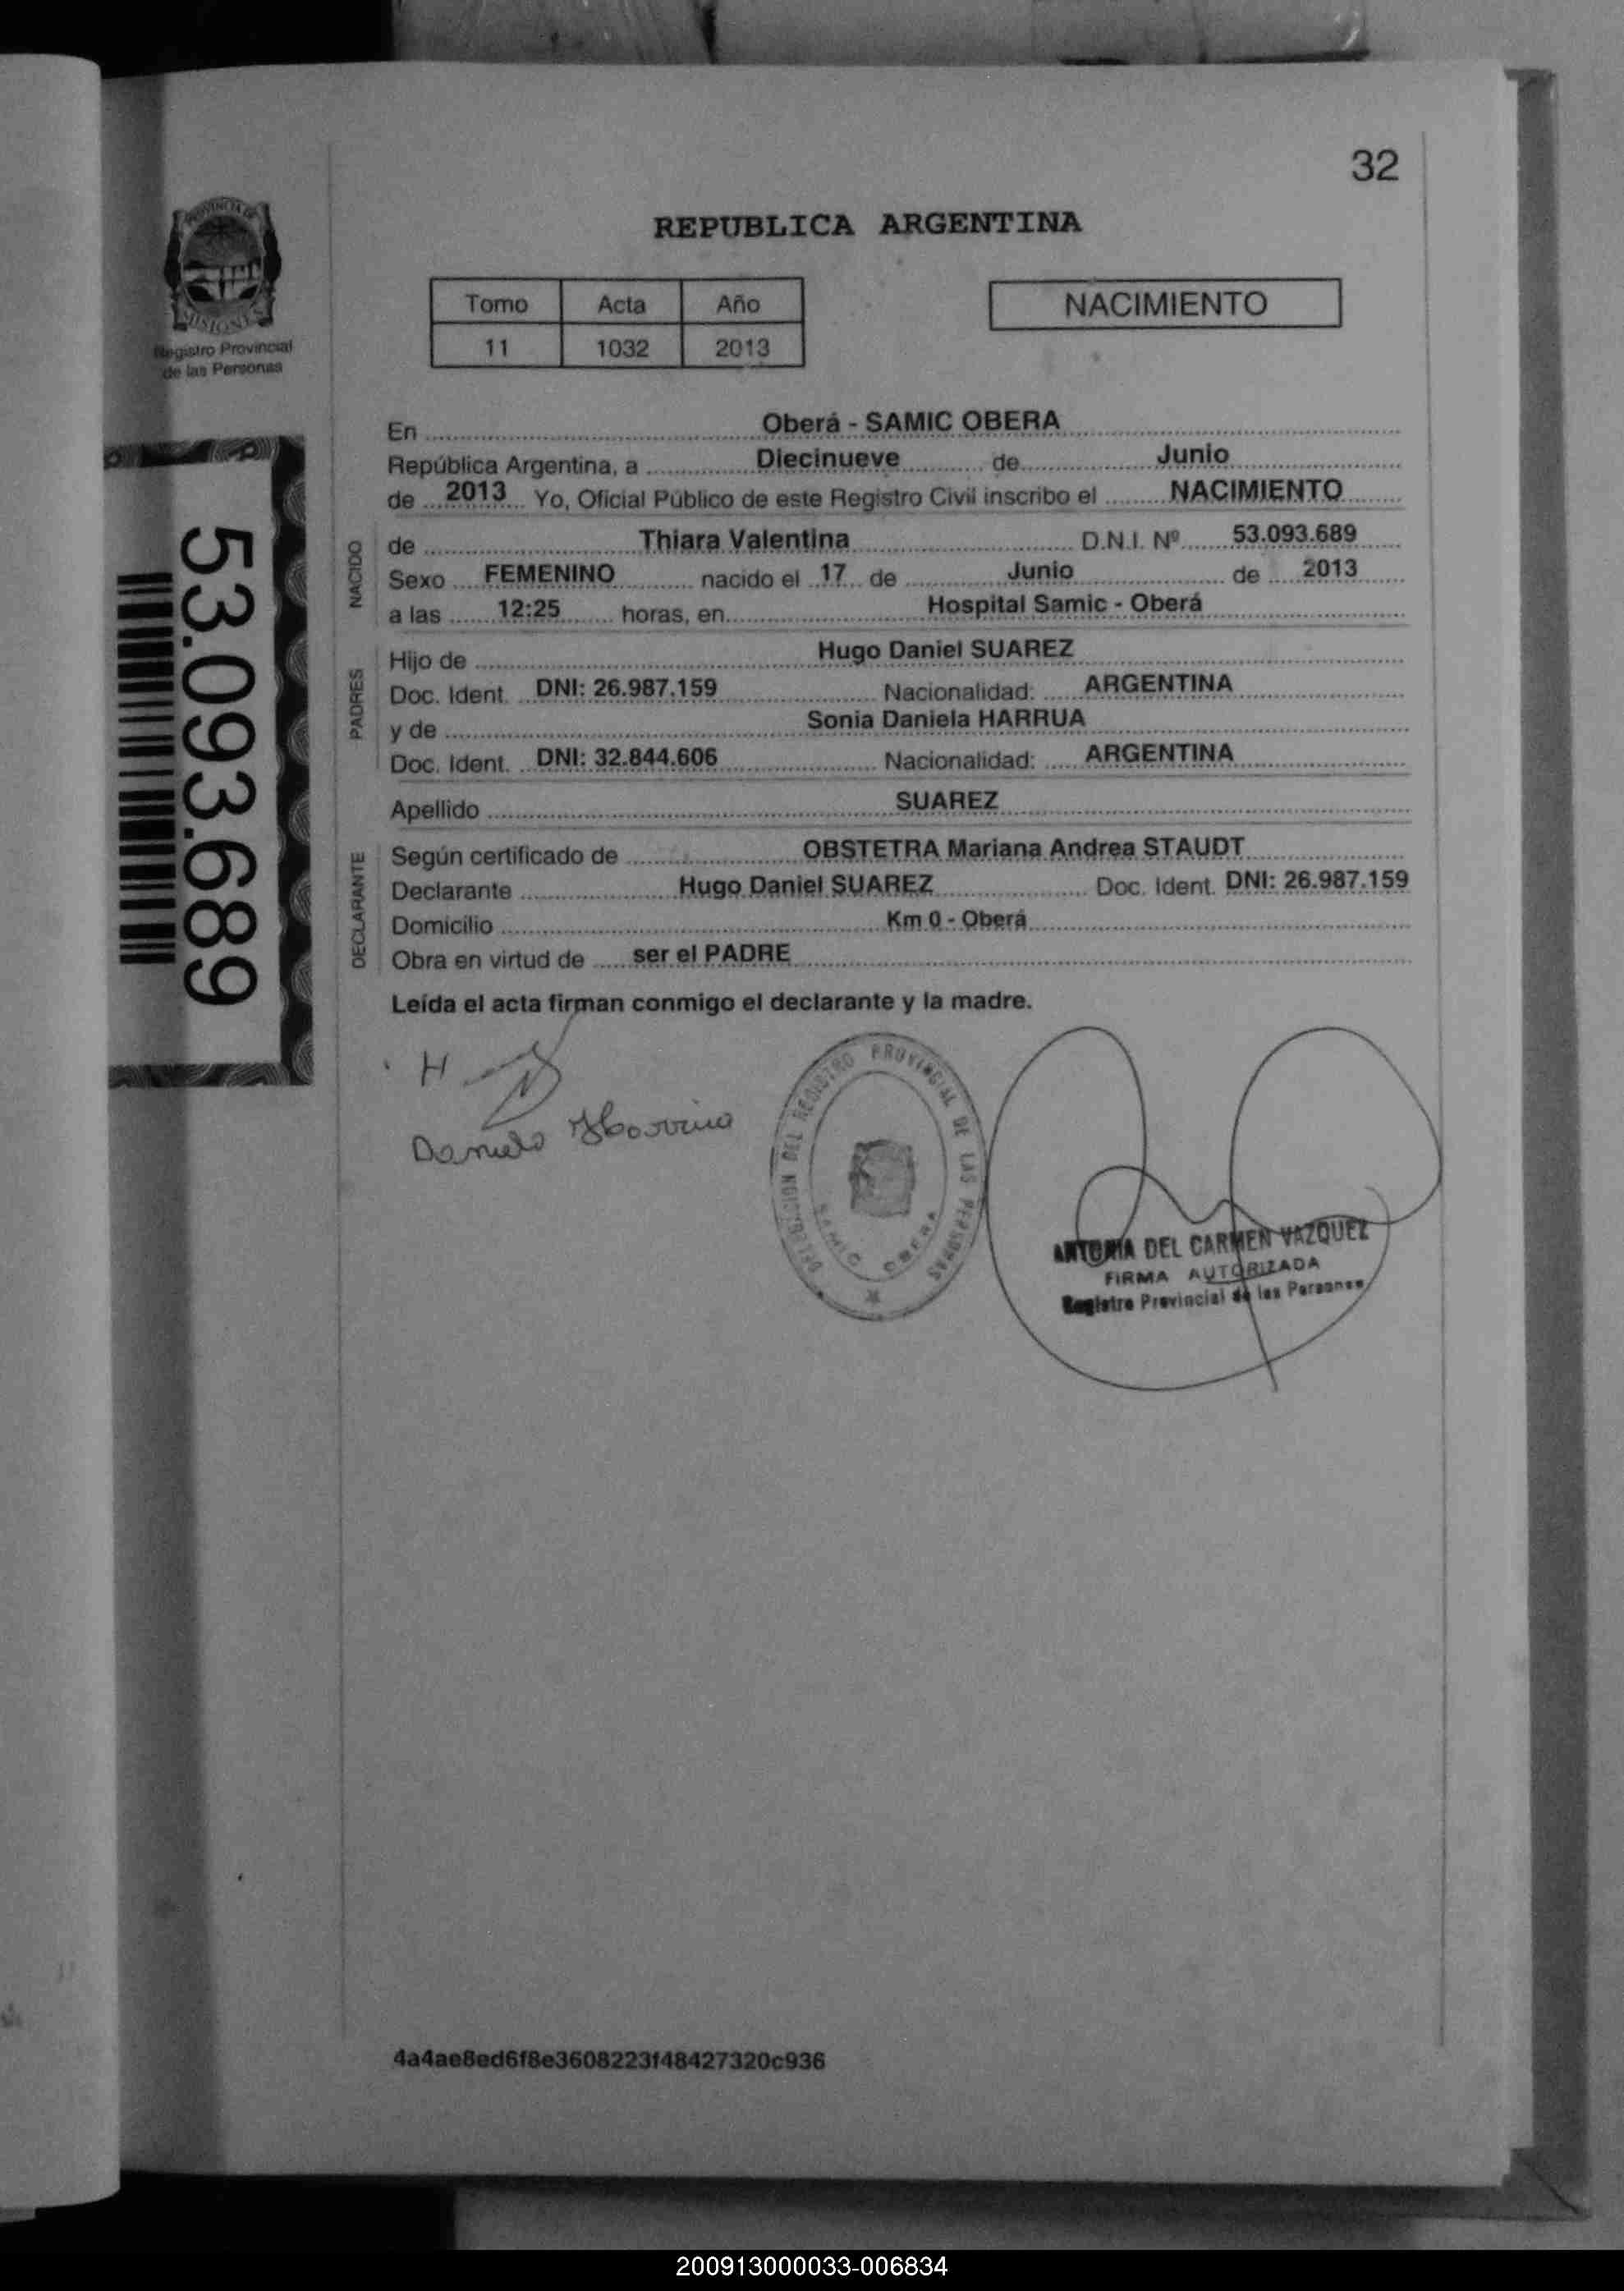 32
PROVINCIA DE
MISIONES
Registro Provincial
de las Personas
REPUBLICA ARGENTINA
Tomo Acta Año
11 1032 2013
NACIMIENTO
53.093.689
En Oberá - SAMIC OBERA
República Argentina, a Diecinueve de Junio
de 2013 Yo, Oficial Público de este Registro Civil inscribo el NACIMIENTO
NACIDO
de Thiara Valentina D.N.I. Nº 53.093.689
Sexo FEMENINO nacido el 17 de Junio de 2013
a las 12:25 horas, en Hospital Samic - Oberá
PADRES
Hijo de Hugo Daniel SUAREZ
Doc. Ident. DNI: 26.987.159 Nacionalidad: ARGENTINA
y de Sonia Daniela HARRUA
Doc. Ident. DNI: 32.844.606 Nacionalidad: ARGENTINA
Apellido SUAREZ
DECLARANTE
Según certificado de OBSTETRA Mariana Andrea STAUDT
Declarante Hugo Daniel SUAREZ Doc. Ident. DNI: 26.987.159
Domicilio Km 0 - Oberá
Obra en virtud de ser el PADRE
Leída el acta firman conmigo el declarante y la madre.
H
DELEGACION DEL REGISTRO PROVINCIAL DE LAS PERSONAS
SAMIC OBERA
ANTONIA DEL CARMEN VAZQUEZ
FIRMA AUTORIZADA
Registro Provincial de las Personas
4a4ae8ed6f8e3608223f48427320c936
200913000033-006834